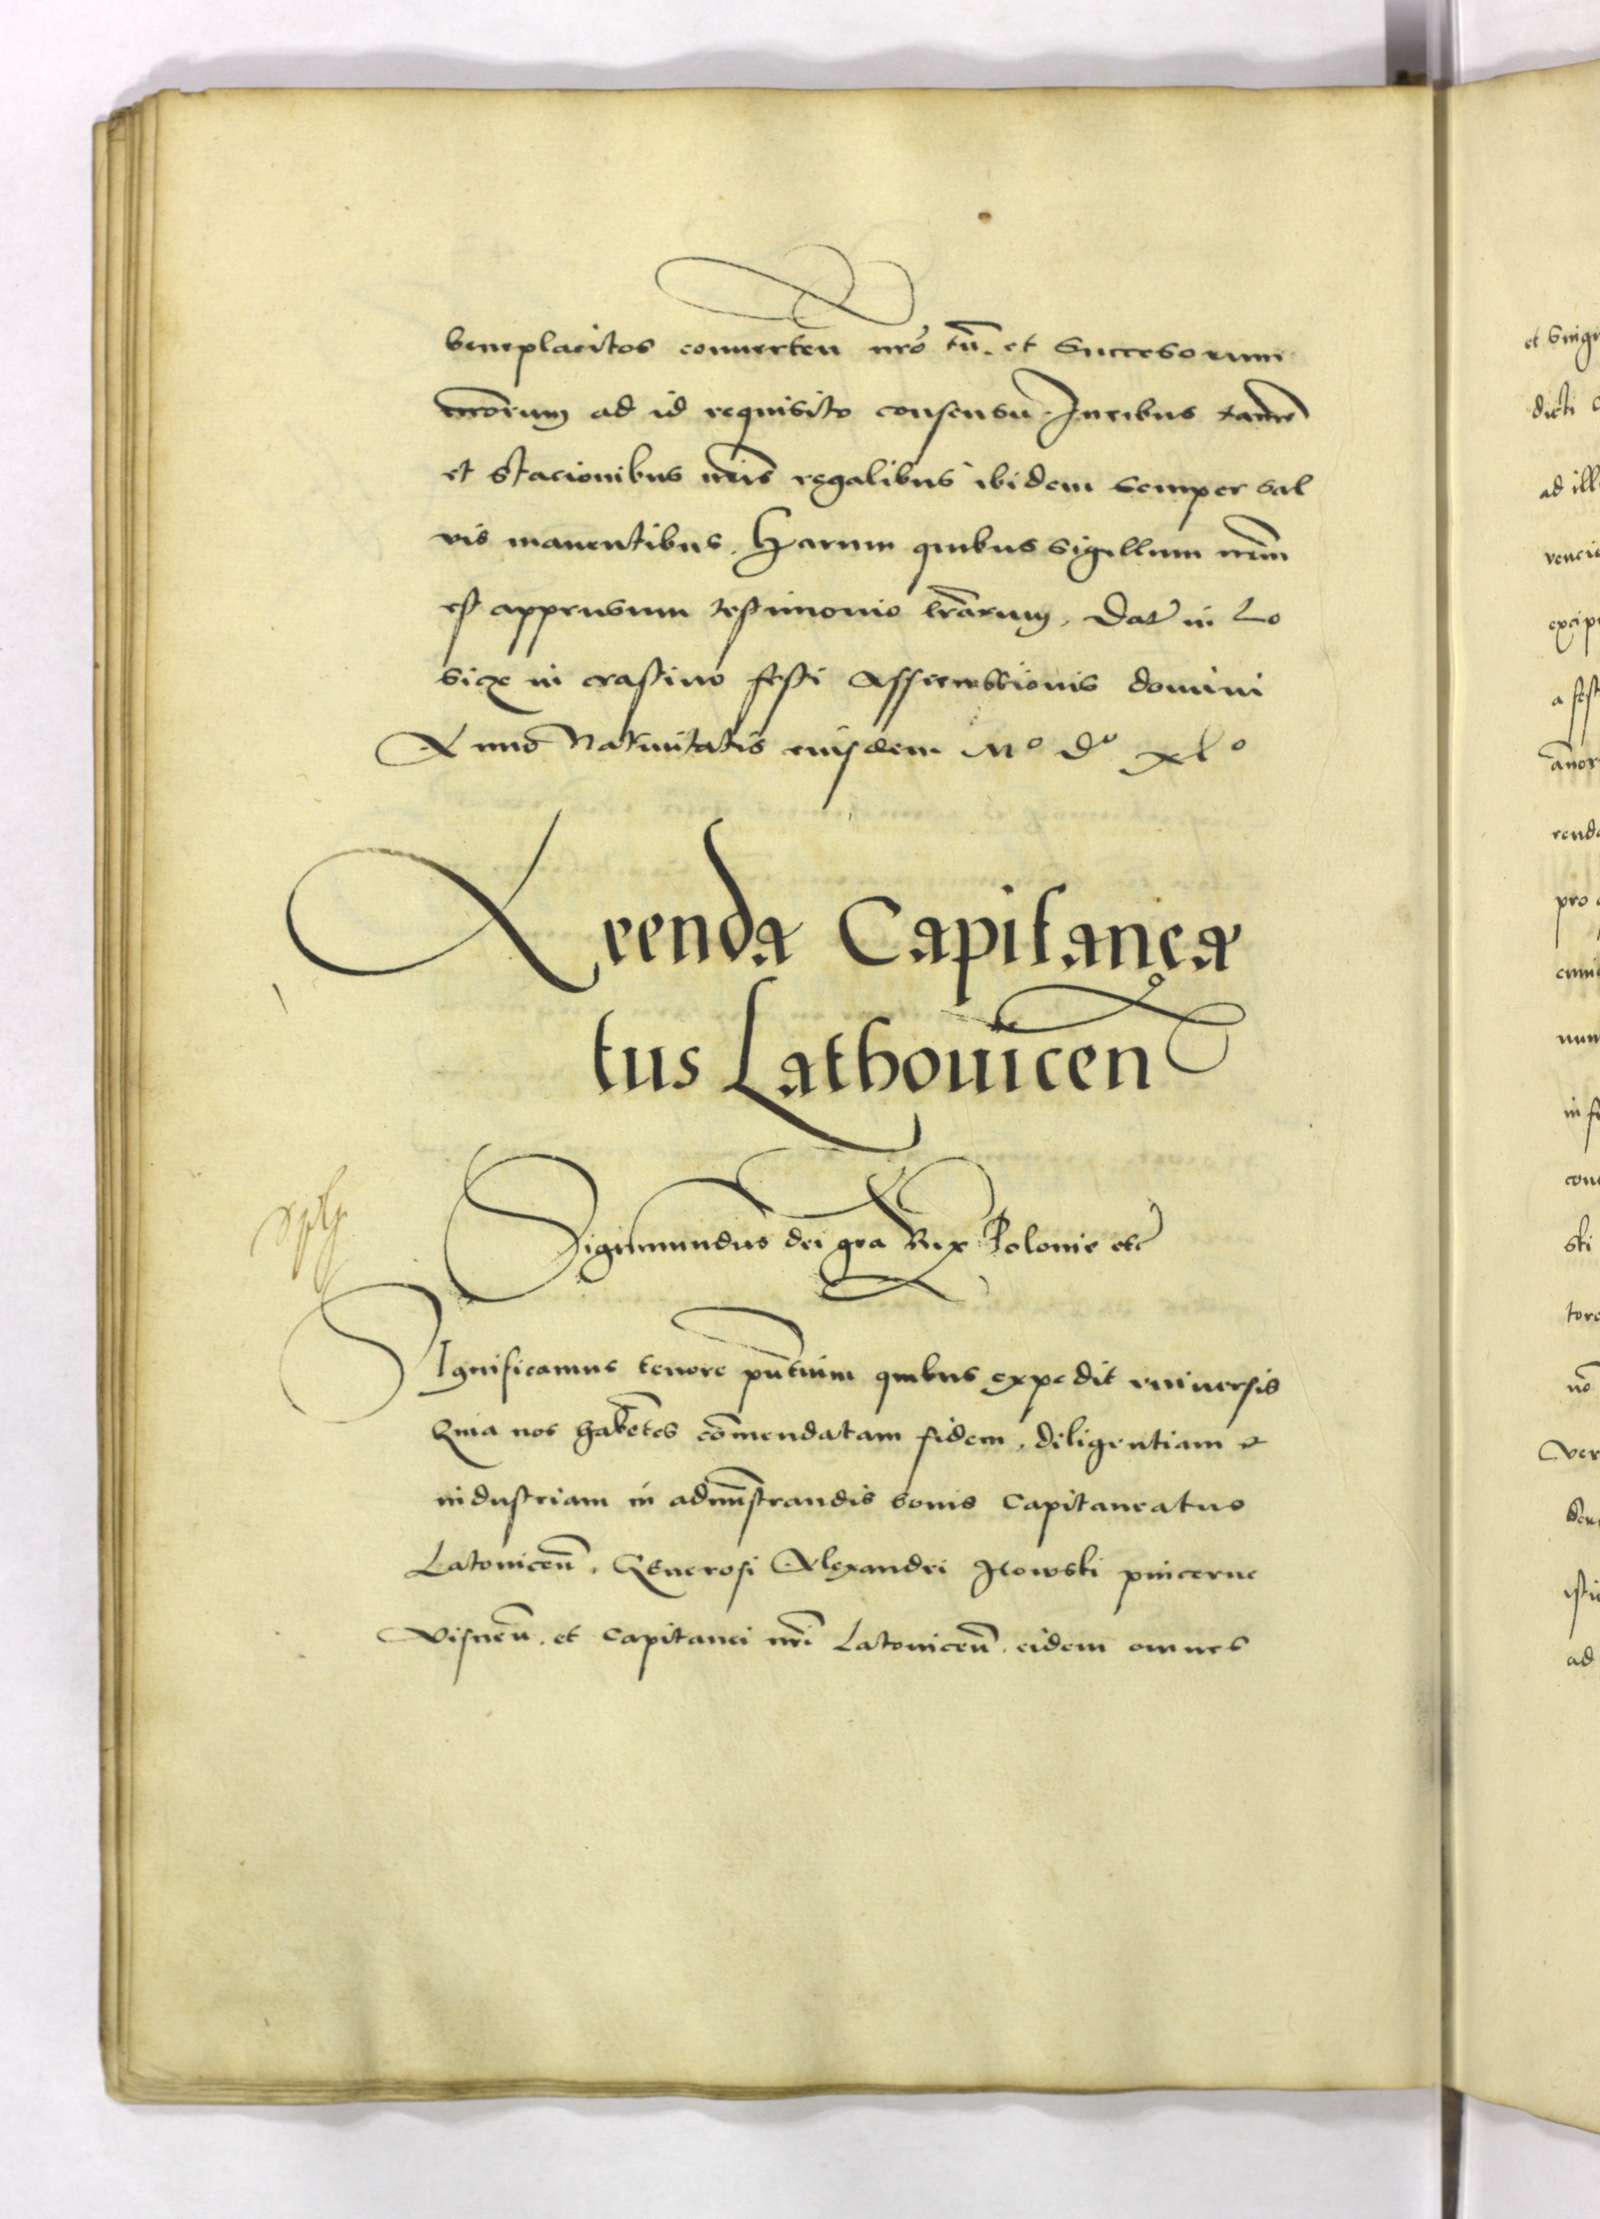 beneplacitos conuerten nrō tn̄. et Successorum
nrōrum ad id requisito consensu. Iuribus tamen
et stacionibus nrīs regalibus ibidem semper sal
vis manentibus. Harum quibus sigillum nrūm
est appensum testimonio lrārum. Dat in Lo
sicze in crastino festi Assensionis domini
Anno Natiuitatis eiusdem Mº Dº xlº
Arenda Capitanea
tus Lathouicen
Sigismundus dei gra Rex Polonie etc
SIgnificamus tenore pn̄tium quibus expedit vniuersis
Quia nos habētes cōmendatam fidem, diligentiam et
industriam in admīstrandis bonis Capitaneatus
Latouiceñ. Generosi Alexandri Ilowski pincerne
Visneñ. et Capitanei nrī Latouiceñ. eidem omnes
et
dicti
ad
a
pro
in
ski
nō
ad